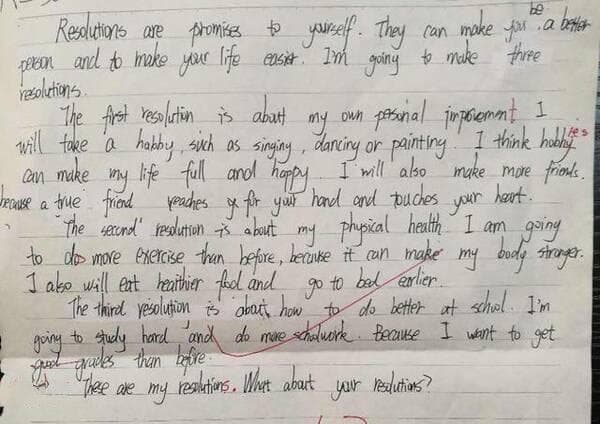 Resolutions are promises to yourself. They can make you be a better
person and to make your life easier. I'm going to make three
resolutions.
The first resolution is about my own personal improvement I
will take a habby, such as singing, dancing or painting. I think hobbyies
can make my life full and happy. I will also make more friends.
because a true friend reaches for your hand and touches your heart.
The second resolution is about my physical health. I am going
to do more exercise than before, because it can make my body stronger.
I also will eat healthier food and go to bed earlier.
The third resolution is about how to do better at school. I'm
going to study hard and do more schoolwork. Because I want to get
good grades than before.
These are my resolutions. What about your resolutions?